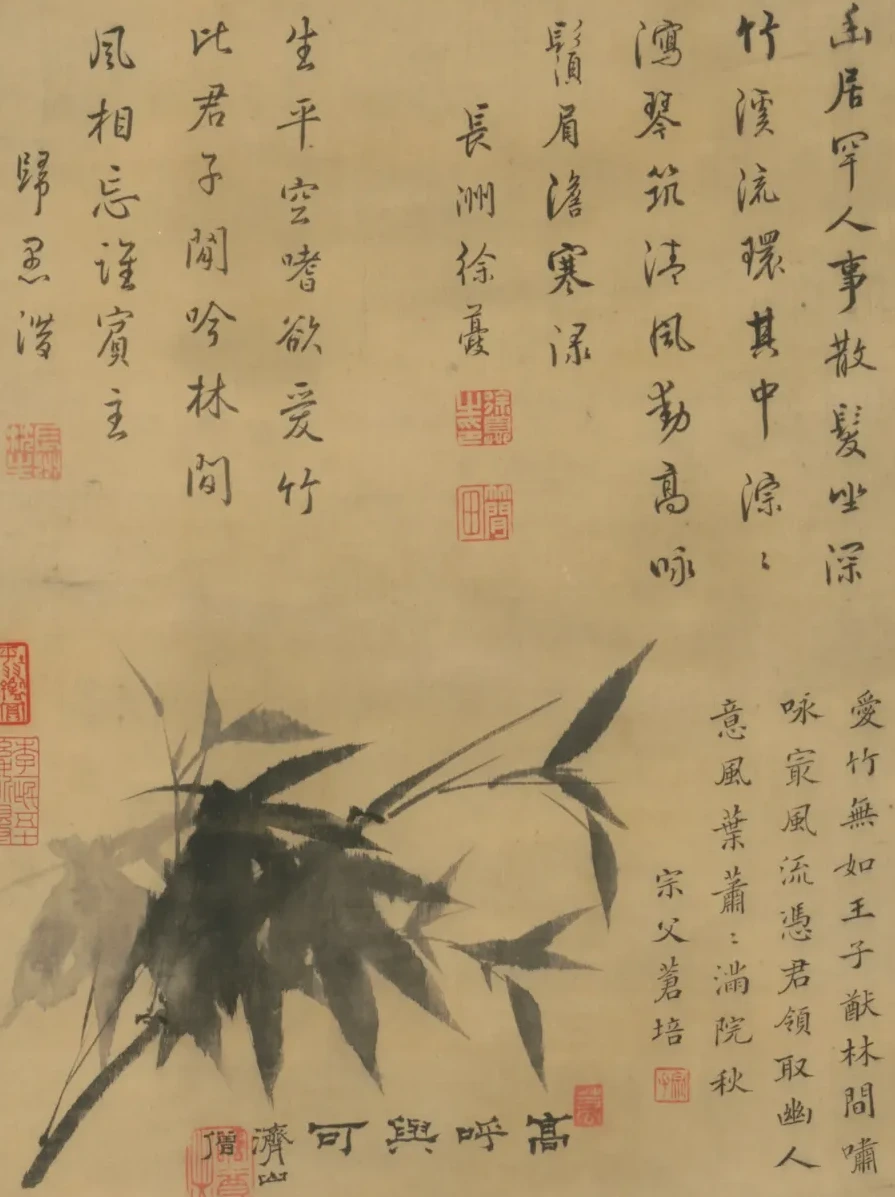 幽居罕人事散髮坐深
竹溪流環其中淙〻
瀉琴筑清風動高咏
鬚眉澹寒渌
長洲徐葵
生平空嗜欲愛竹
比君子閒吟林間
風相忘誰賓主
歸愚潛
愛竹無如王子猷林間嘯
咏寂風流憑君領取幽人
意風葉蕭〻滿院秋
宗父蒼培
高呼與可
濟山僧